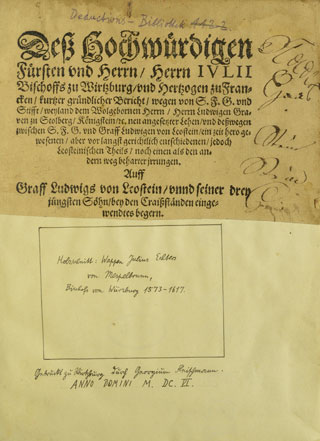 Deductions-Bibliothek
Deß Hochwürdigen
Fürsten vnd Herrn / Herrn IVLII
Bischoffs zu Wirtzburg / vnd Hertzogen zu Fran-
cken / kurtzer gründlicher Bericht / wegen von S. F. G. vnd
Stifft / weyland dem Wolgebornen Herrn / Herrn Ludwigen Gra-
uen zu Stolberg / Königstein / rc. neu angesetzter Lehen / vnd deßwegen
zwischen S. F. G. vnd Graff Ludwigen von Leostein / ein zeit hero ge-
wesenen / aber vor langst gerichtlich entschiedenen / jedoch
Leosteinischen Theils / noch einen als den an-
dern weg beharrter jrrungen.
Auff
Graff Ludwigs von Leostein / vnnd seiner drey
jüngsten Söhn / bey den Craißständen einge-
wendtes begern.
Holzschnitt: Wappen Julius Echters
von Mespelbrunn,
Bischof von Würzburg 1573-1617.
Gedruckt zu Würtzburg durch Georgium Fleischmann.
ANNO DOMINI M. DC. VI.